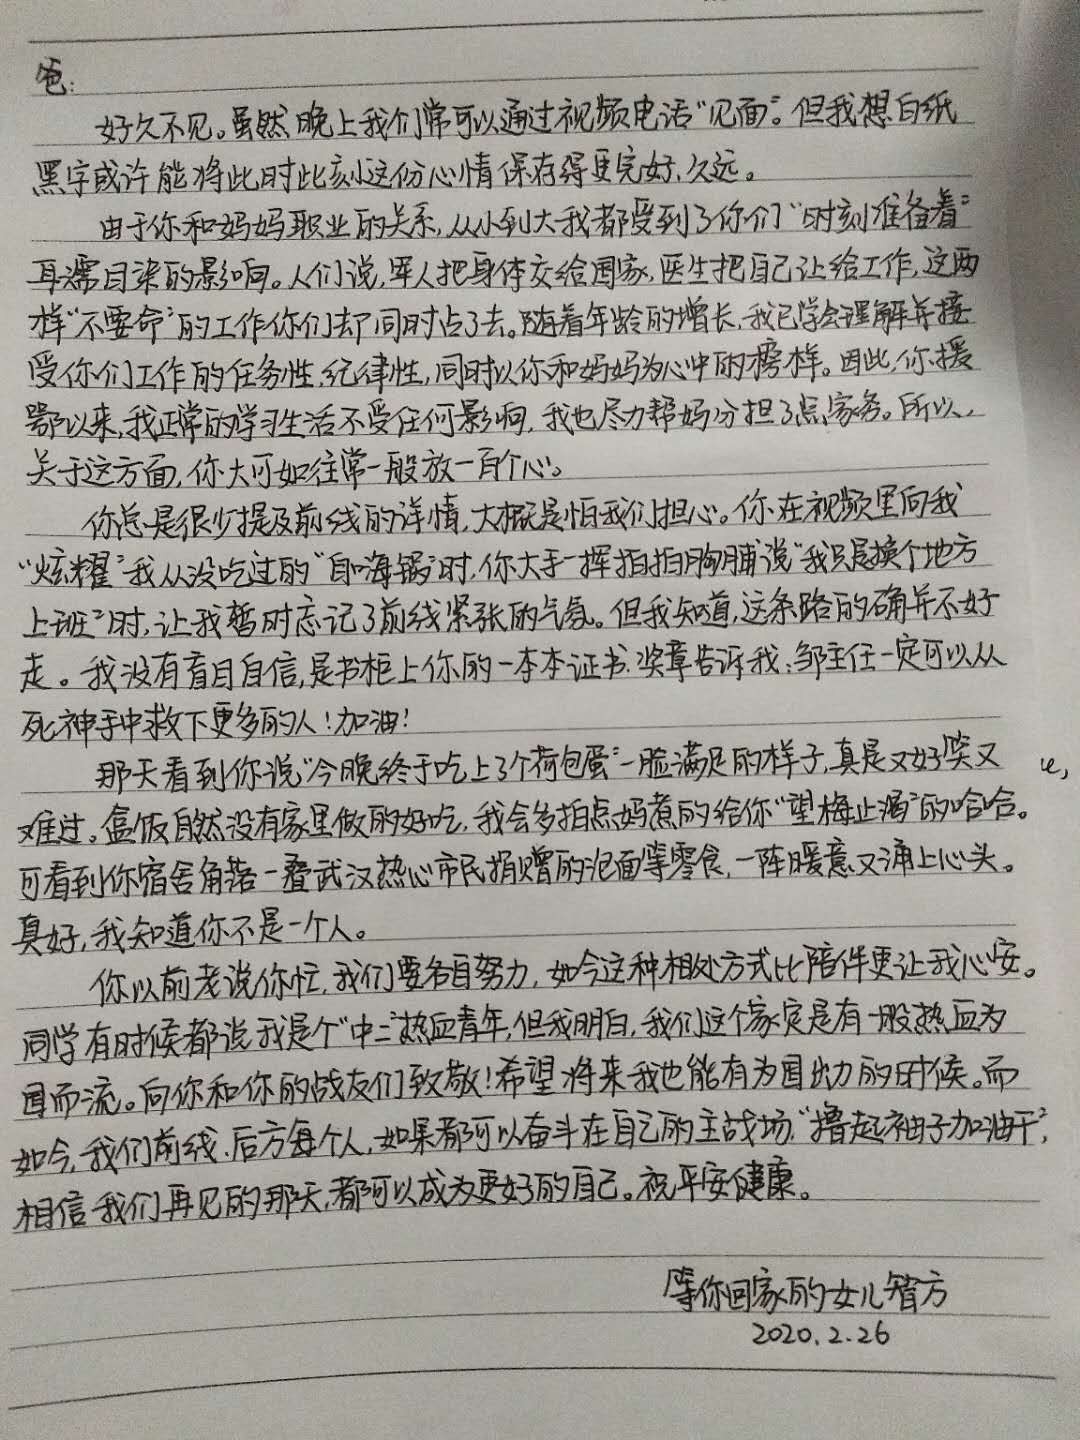 爸：
好久不见。虽然晚上我们常可以通过视频电话“见面”。但我想白纸
黑字或许能将此时此刻这份心情保存得更完好、久远。
由于你和妈妈职业的关系，从小到大我都受到了你们“时刻准备着”
耳濡目染的影响。人们说，军人把身体交给国家，医生把自己让给工作，这两
样“不要命”的工作你们却同时占了去。随着年龄的增长，我已学会理解并接
受你们工作的任务性、纪律性，同时以你和妈妈为心中的榜样。因此，你援
鄂以来，我正常的学习生活不受任何影响，我也尽力帮妈分担了点家务。所以，
关于这方面，你大可如往常一般放一百个心。
你总是很少提及前线的详情，大概是怕我们担心。你在视频里向我
“炫耀”我从没吃过的“自嗨锅”时，你大手一挥拍拍胸脯说“我只是换个地方
上班”时，让我暂时忘记了前线紧张的气氛。但我知道，这条路的确并不好
走。我没有盲目自信，是书柜上你的一本本证书、奖章告诉我：邹主任一定可以从
死神手中救下更多的人！加油！
那天看到你说“今晚终于吃上了个荷包蛋”一脸满足的样子，真是又好笑又
难过。盒饭自然没有家里做的好吃，我会多拍点妈煮的给你“望梅止渴”的哈哈。
可看到你宿舍角落一叠武汉热心市民捐赠的泡面等零食，一阵暖意又涌上心头。
真好，我知道你不是一个人。
你以前老说你忙，我们要各自努力，如今这种相处方式比陪伴更让我心安。
同学有时候都说我是个“中二”热血青年，但我明白，我们这个家定是有一股热血为
国而流。向你和你的战友们致敬！希望将来我也能有为国出力的时候。而
如今，我们前线、后方每个人，如果都可以奋斗在自己的主战场，“撸起袖子加油干”，
相信我们再见的那天，都可以成为更好的自己。祝平安健康。
等你回家的女儿智方
2020.2.26